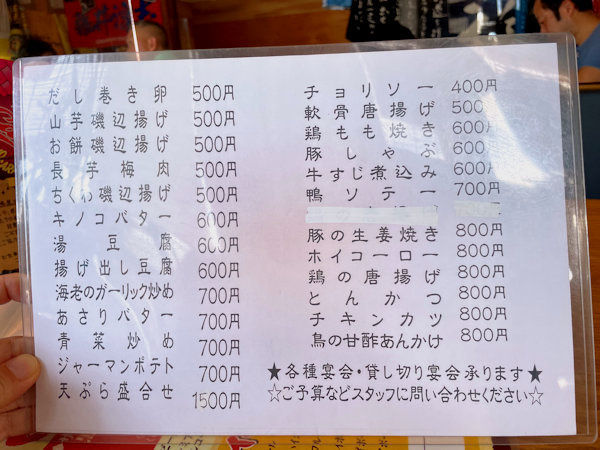 だし巻き卵 500円
山芋磯辺揚げ 500円
お餅磯辺揚げ 500円
長芋梅肉 500円
ちくわ磯辺揚げ 500円
キノコバター 600円
湯豆腐 600円
揚げ出し豆腐 600円
海老のガーリック炒め 700円
あさりバター 700円
青菜炒め 700円
ジャーマンポテト 700円
天ぷら盛合せ 1500円
チョリソー 400円
軟骨唐揚げ 500
鶏もも焼き 600円
豚しゃぶ 600円
牛すじ煮込み 600円
鴨ソテー 700円
豚の生姜焼き 800円
ホイコーロー 800円
鶏の唐揚げ 800円
とんかつ 800円
チキンカツ 800円
鳥の甘酢あんかけ 800円
★各種宴会・貸し切り宴会承ります★
☆ご予算などスタッフに問い合わせください☆